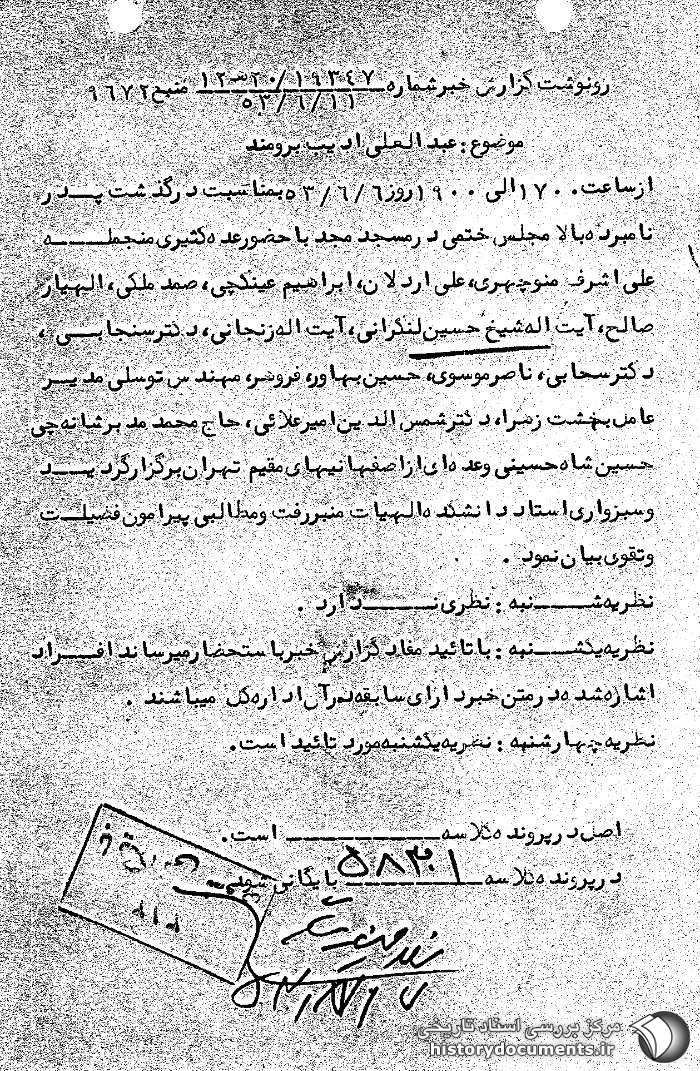 رونوشت گزارش خبر شماره ۱۹۳۴۷/۲۰ﻫ۱۲ منبع ۹۶۷۲
۵۳/۶/۱۱
موضوع: عبدالعلی ادیب برومند
از ساعت ۱۷۰۰ الی ۱۹۰۰ روز ۵۳/۶/۶ بمناسبت درگذشت پـــدر
نامبرده بالا مجلس ختمی در مسجد مجد با حضور عده کثیری منجملـــه
علی اشرف منوچهری، علی اردلان، ابراهیم عینکچی، صمد ملکی، الهیار
صالح، آیت اله شیخ حسین لنکرانی، آیت اله زنجانی، دکتر سنجابـــی،
دکتر سحابی، ناصر موسوی، حسین بهاور، فروهر، مهندس توسلی مدیـر
عامل بهشت زهرا، دکتر شمس الدین امیرعلائی، حاج محمد مدیر شانه چی
حسین شاه حسینی و عده ای از اصفهانیهای مقیم تهران برگزار گردیـــد
و سبزواری استاد دانشکده الهیات منبر رفت و مطالبی پیرامون فضیلـــت
و تقوی بیان نمود.
نظریه شـــنبه: نظری نـــدارد.
نظریه یکشـــنبه: با تائید مفاد گزارش خبر باستحضار میرساند افـــراد
اشاره شده در متن خبر دارای سابقه در آن اداره کل میباشند.
نظریه چهارشنبه: نظریه یکشنبه مورد تائید است.
اصل در پرونده کلاسه ـــــ است.
در پرونده کلاسه ۵۸۳۰۱ بایگانی شود
مرکز بررسی اسناد تاریخی
historydocuments.ir